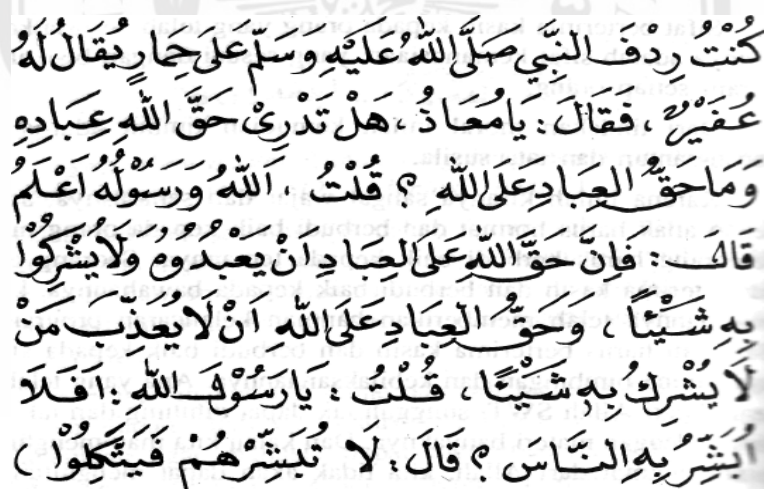 كُنْتُ رِدْفَ النَّبِيِّ صَلَّى اللهُ عَلَيْهِ وَسَلَّمَ عَلَى حِمَارٍ يُقَالُ لَهُ
عُفَيْرٌ ، فَقَالَ : يَا مُعَاذُ ، هَلْ تَدْرِىْ حَقَّ اللهِ عِبَادِهِ
وَمَا حَقُّ العِبَادِ عَلَى اللهِ ؟ قُلْتُ ، اَللهُ وَرَسُوْلُهُ اَعْلَمُ
قَالَ : فَإِنَّ حَقَّ اللهِ عَلَى العِبَادِ أَنْ يَعْبُدُوهُ وَلَا يُشْرِكُوْا
بِهِ شَيْئًا ، وَحَقُّ العِبَادِ عَلَى اللهِ اَنْ لَا يُعَذِّبَ مَنْ
لَا يُشْرِكُ بِهِ شَيْئًا ، قُلْتُ : يَارَسُوْلَ اللهِ : اَفَلَا
اُبَشِّرُ بِهِ النَّاسَ ؟ قَالَ : لَا تُبَشِّرْهُمْ فَيَتَّكِلُوْا )